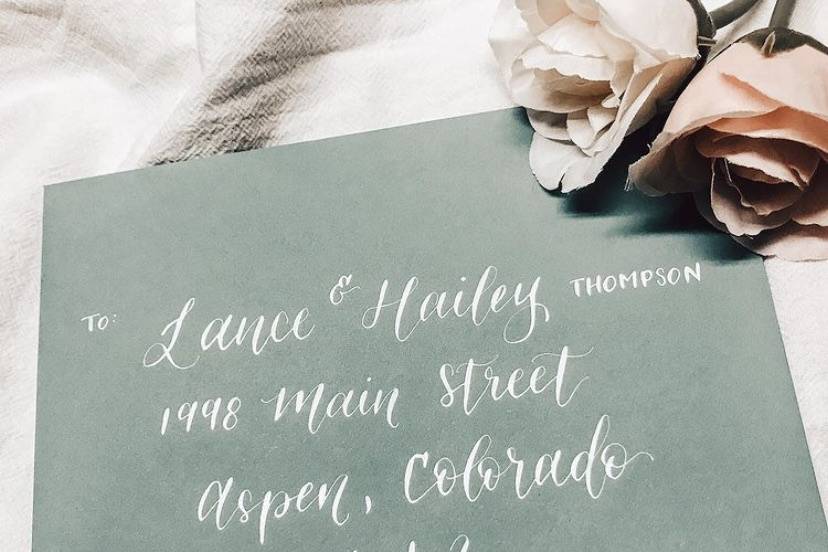 To: Lance & Hailey THOMPSON
1998 Main Street
Aspen, Colorado